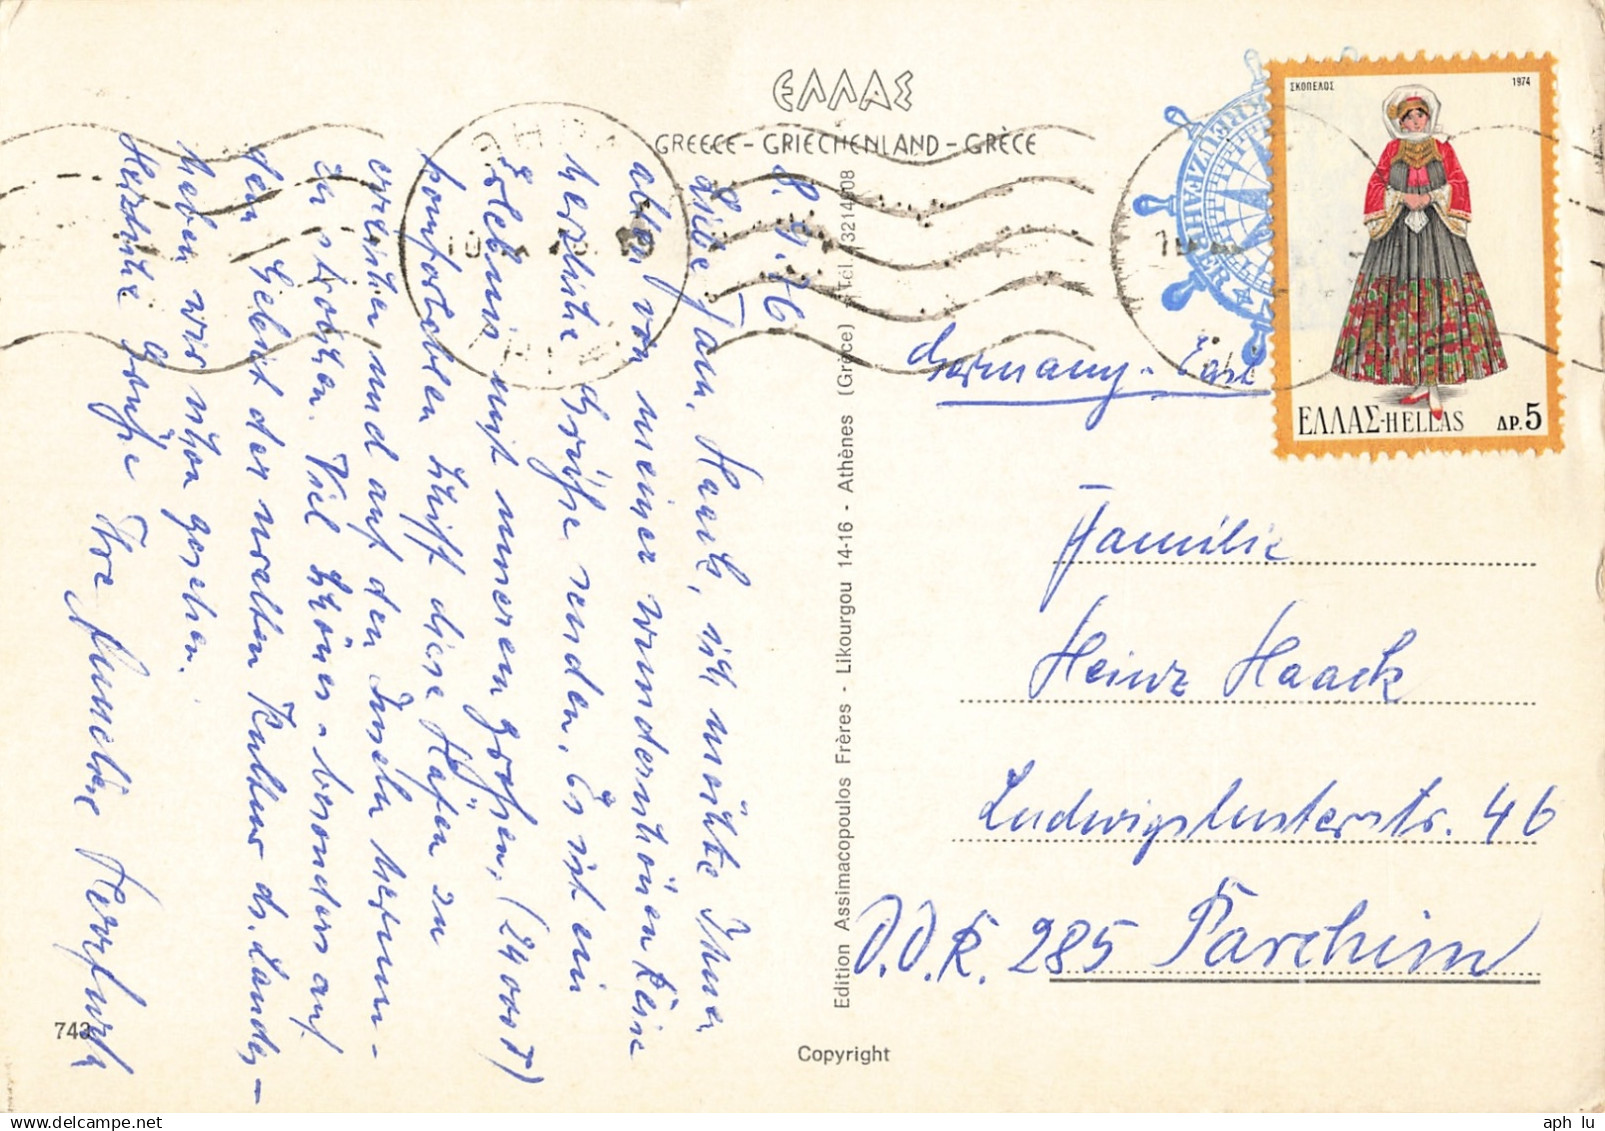 ΕΛΛΑΣ
GREECE - GRIECHENLAND - GRÈCE
ΣΚΟΠΕΛΟΣ 1974
ΕΛΛΑΣ-HELLAS ΔΡ.5
KREUZFAHRER
8. 9. 76
Liebe Fam. Haack, ich möchte Ihnen
allen von meiner wunderschönen Reise
herzliche Grüße senden. Es ist ein
Erlebnis mit unserem großen, (24000 T)
komfortablen Schiff diese Häfen zu
erreichen und auf den Inseln herum-
zu strolchen. Viel Schönes - besonders auf
dem Gebiet der uralten Kultur ds. Landes -
haben wir schon gesehen.
Herzliche Grüße Ihre Annelise
Germany - East
Familie
Heinz Haack
Ludwigslusterstr. 46
D.D.R. 285 Parchim
Edition Assimacopoulos Frères - Likourgou 14-16 - Athènes (Grèce) Tél. 3214808
743
Copyright
aph lu